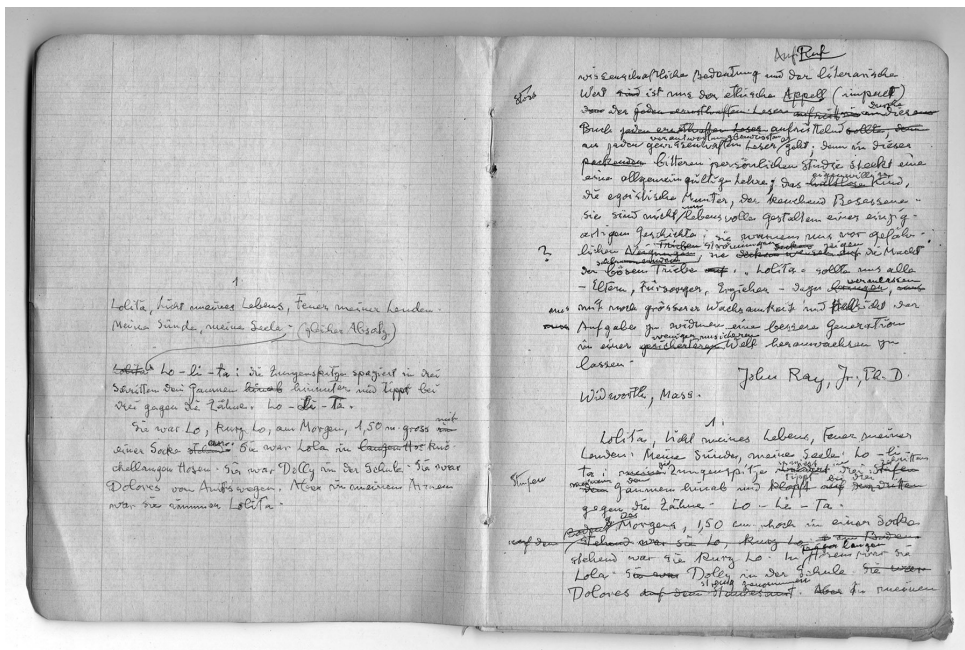 1
Lolita, Licht meines Lebens, Feuer meiner Lenden.
Meine Sünde, meine Seele. (gleicher Absatz)
Lolita Lo-li-ta: die Zungenspitze spaziert in drei
Schritten den Gaumen hinab hinunter und tippt bei
drei gegen die Zähne. Lo-li-ta.
Sie war Lo, kurz Lo, am Morgen, 1,50 m gross mit
einer Socke an. Sie war Lola in knö-
chellangen Hosen. Sie war Dolly in der Schule. Sie war
Dolores von Amtswegen. Aber in meinen Armen
war sie immer Lolita.
Auf Ruf
wissenschaftliche Bedeutung und der literarische
Wert sind ist uns der ethische Appell (impact)
den der jeden ernsthaften Leser
Buch jeden ernsthaften Leser aufrütteln sollte, denn
an jeden verantwortungsbewussten gewissenhaften Leser geht; denn in dieser
packenden bitteren persönlichen Studie steckt eine
eine allgemeingültige Lehre; das eigenwillige haltlose Kind,
die egoistische Mutter, der keuchend Besessene -
sie sind nicht nur lebensvolle Gestalten einer einzig-
artigen Geschichte: sie warnen uns vor gefähr-
? lichen zeigen die Macht
der bösen Triebe auf. "Lolita" sollte uns alle
- Eltern, Fürsorger, Erzieher - dazu veranlassen
uns mit noch grösserer Wachsamkeit und der
Aufgabe zu widmen eine bessere Generation
in einer weniger unsicheren gesicherteren Welt heranwachsen zu
lassen.
John Ray, Jr., Ph. D.
Widworth, Mass.
1.
Lolita, Licht meines Lebens, Feuer meiner
Lenden. Meine Sünde, meine Seele. Lo-li-
ta: Zungenspitze drei Stufen
Gaumen hinab und klopft
gegen die Zähne. Lo-Li-Ta.
Des Morgens, 1,50 cm hoch in einer Socke
stehend war sie Lo, kurz Lo
stehend war sie kurz Lo. In langen Hosen war sie
Lola. Sie war Dolly in der Schule. Sie war
Dolores streng genommen auf dem Standesamt. Aber in meinen